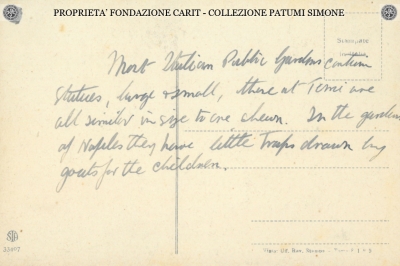 PROPRIETA' FONDAZIONE CARIT - COLLEZIONE PATUMI SIMONE
Most Italian Public Gardens contain
statues, large & small, these at Terni are
all similar in size to one shewn. In the gardens
of Naples they have little traps drawn by
goats for the children.
STA
33497